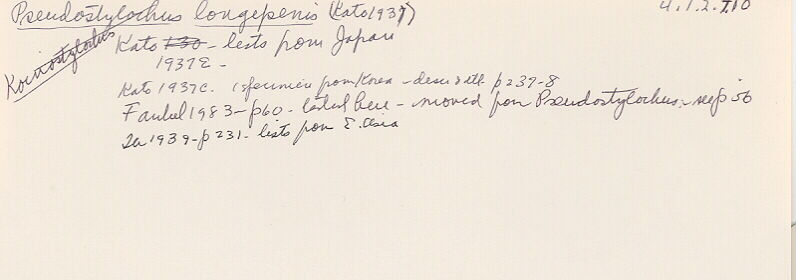 Pseudostylochus longepenis (Kato 1937) 4.1.2.I10
Koinostylochus
Kato 130 - lists from Japan
1937E -
Kato 1937c. 1 specimen from Korea - descr & ill. p 237-8
Faubel 1983 - p60 - listed here - moved from Pseudostylochus - see p 56
1939 - p 231 - lists from E. Asia